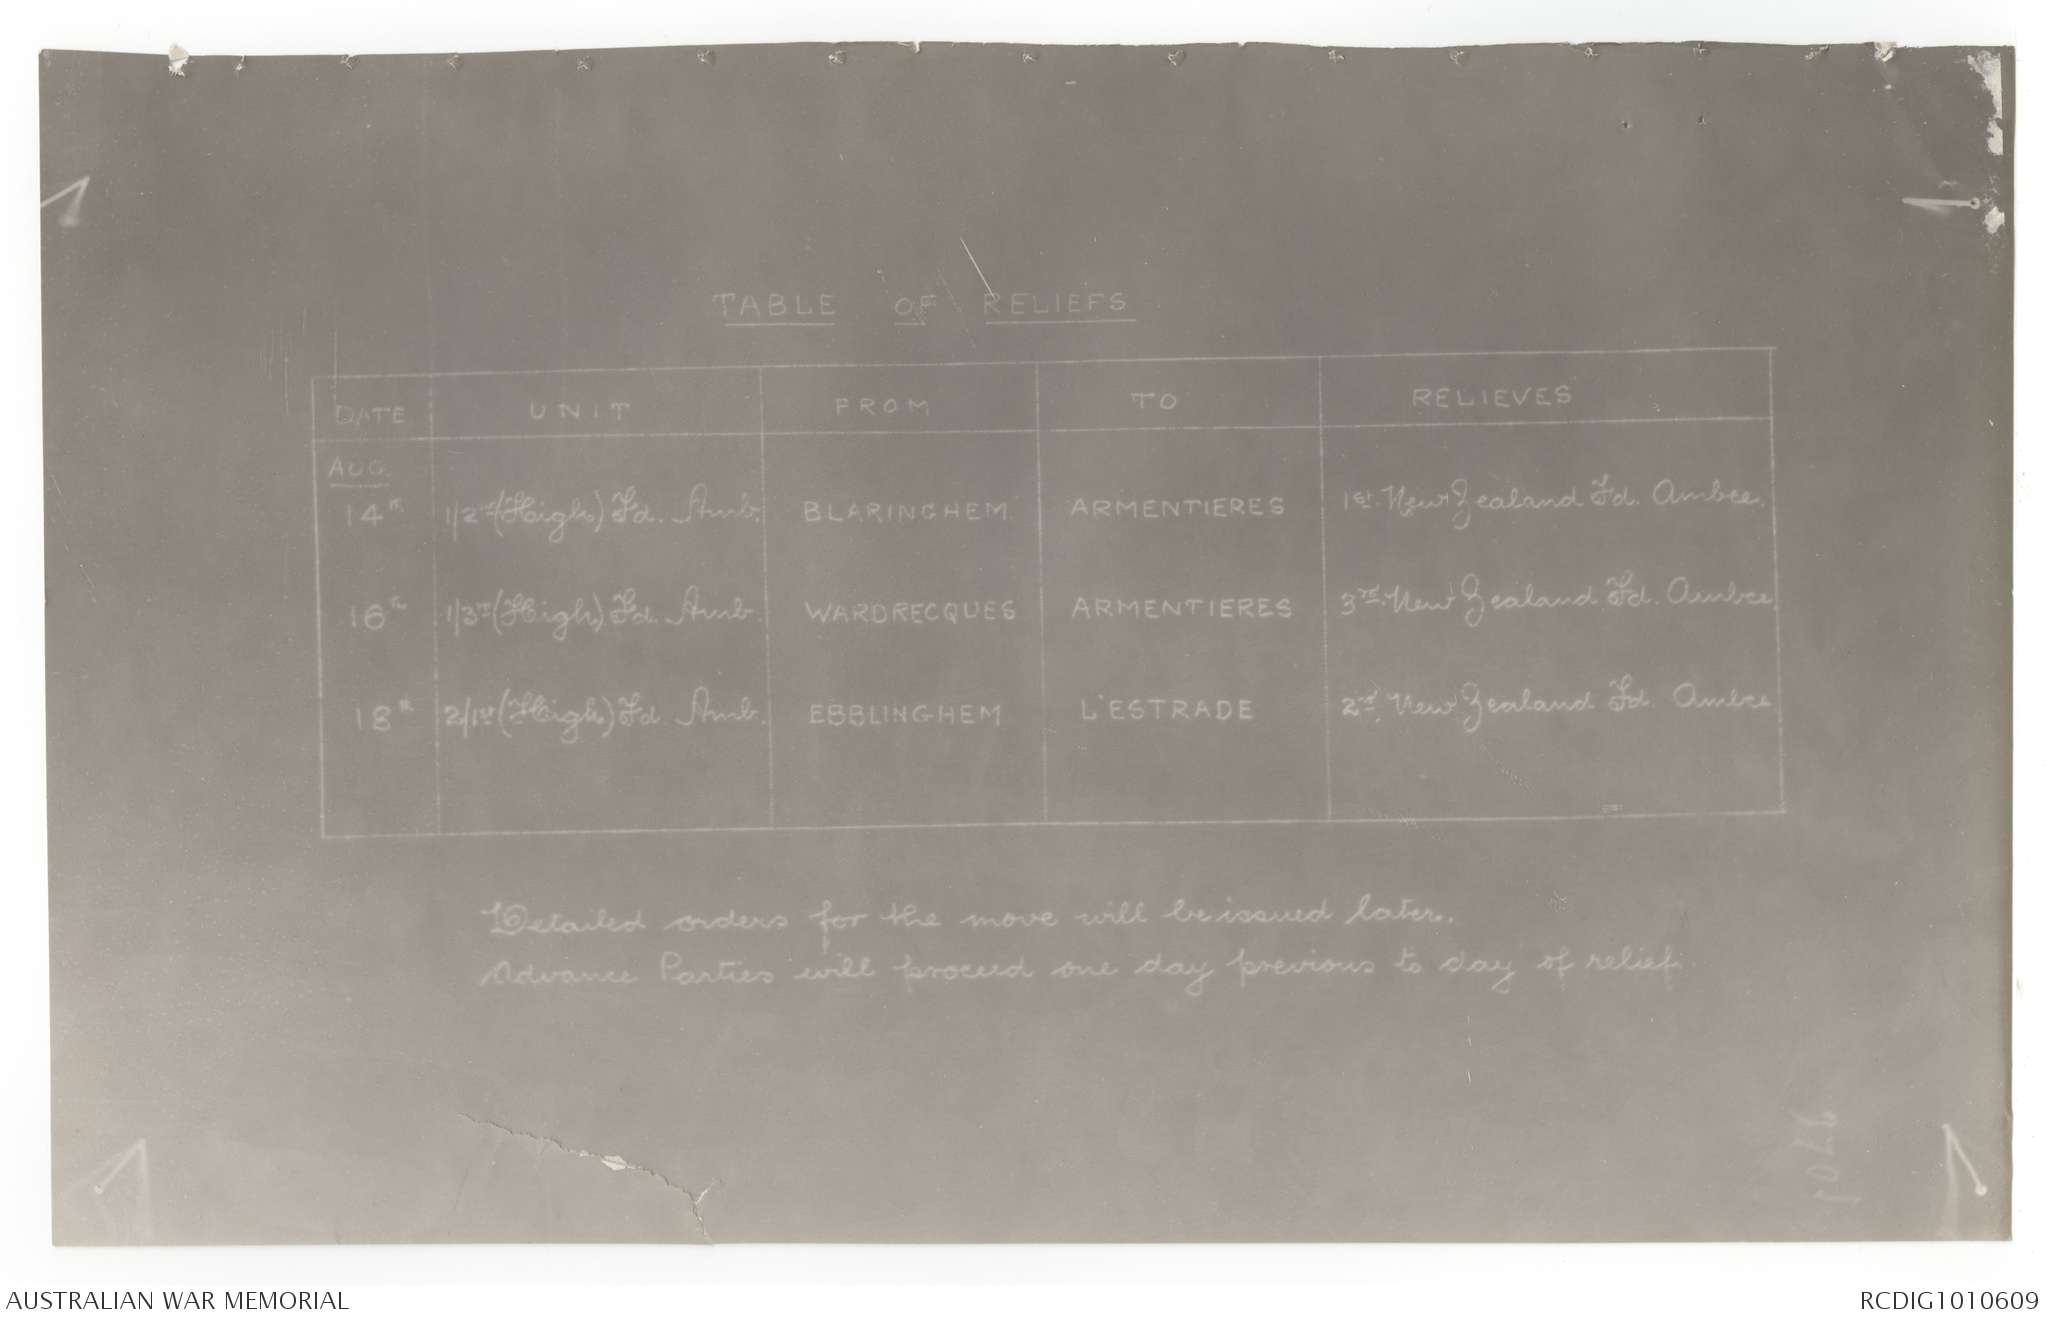 TABLE OF RELIEFS
DATE UNIT FROM TO RELIEVES
AUG.
14th 1/2nd (High) Fd. Amb. BLARINGHEM ARMENTIERES 1st New Zealand Fd. Ambce.
16th 1/3rd (High) Fd. Amb. WARDRECQUES ARMENTIERES 3rd New Zealand Fd. Ambce.
18th 2/1st (High) Fd Amb. EBBLINGHEM L'ESTRADE 2nd New Zealand Fd. Ambce
Detailed orders for the move will be issued later.
Advance Parties will proceed one day previous to day of relief.
AUSTRALIAN WAR MEMORIAL
RCDIG1010609